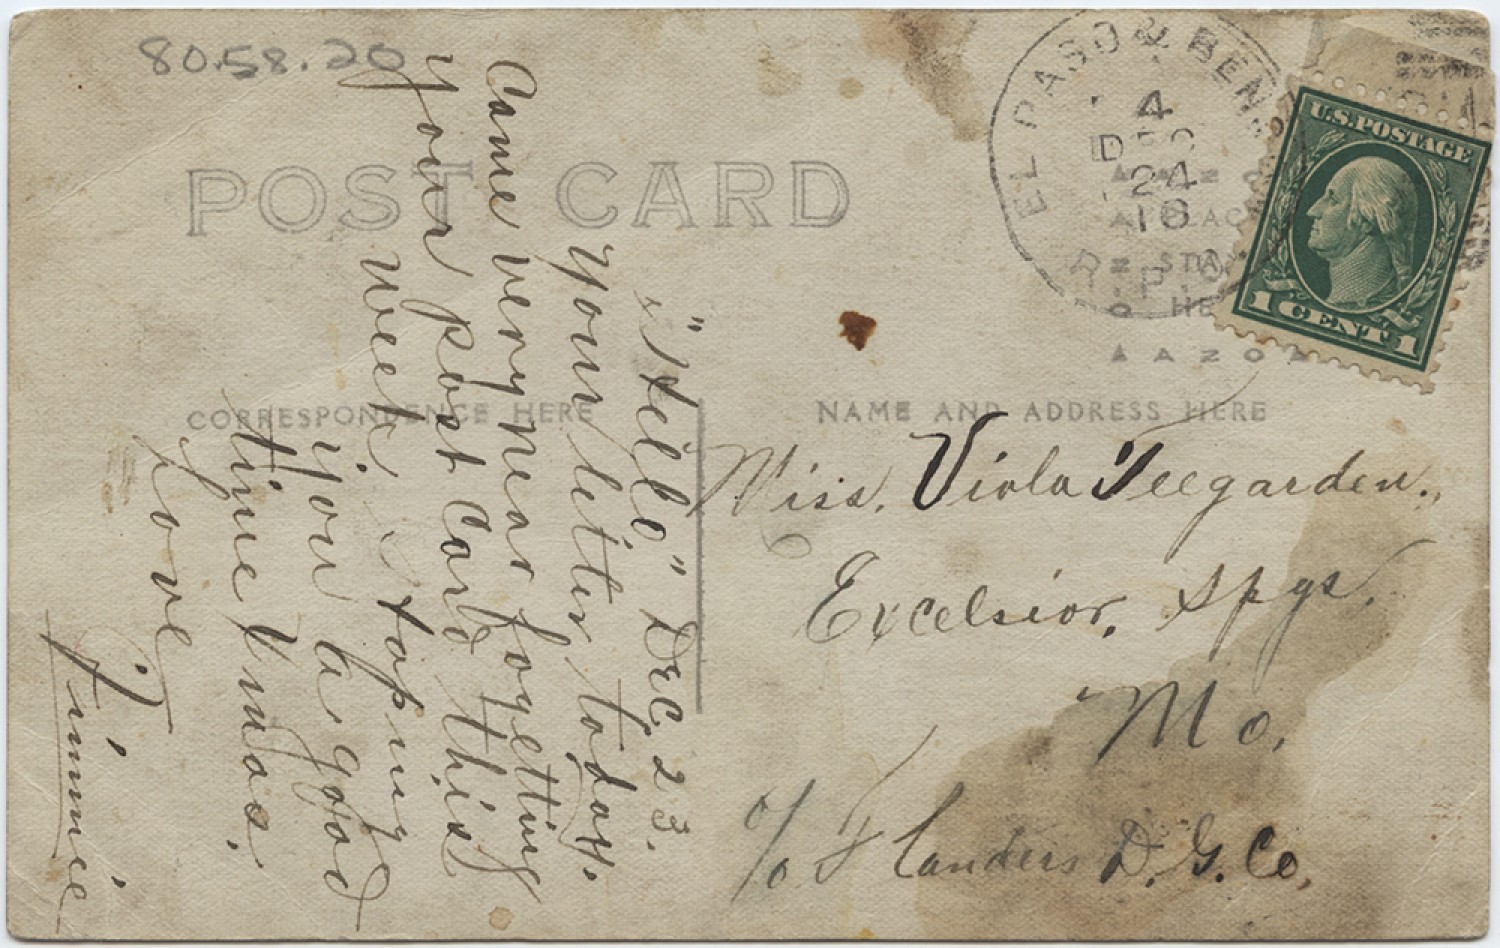 80.58.20
POST CARD
CORRESPONDENCE HERE
NAME AND ADDRESS HERE
EL PASO & BEN
4
DEC
24
16
R.P.O.
PLACE
STA
HE
AZO
U.S. POSTAGE
1 CENT 1
"Hello" Dec 23.
Your letter today.
Came very near forgetting
Your post card this
week. hoping
you a good
time Xmas.
Love
Jimmie
Miss. Viola Teegarden.,
Excelsior, Spgs.
Mo.
c/o Flanders D. G. Co,